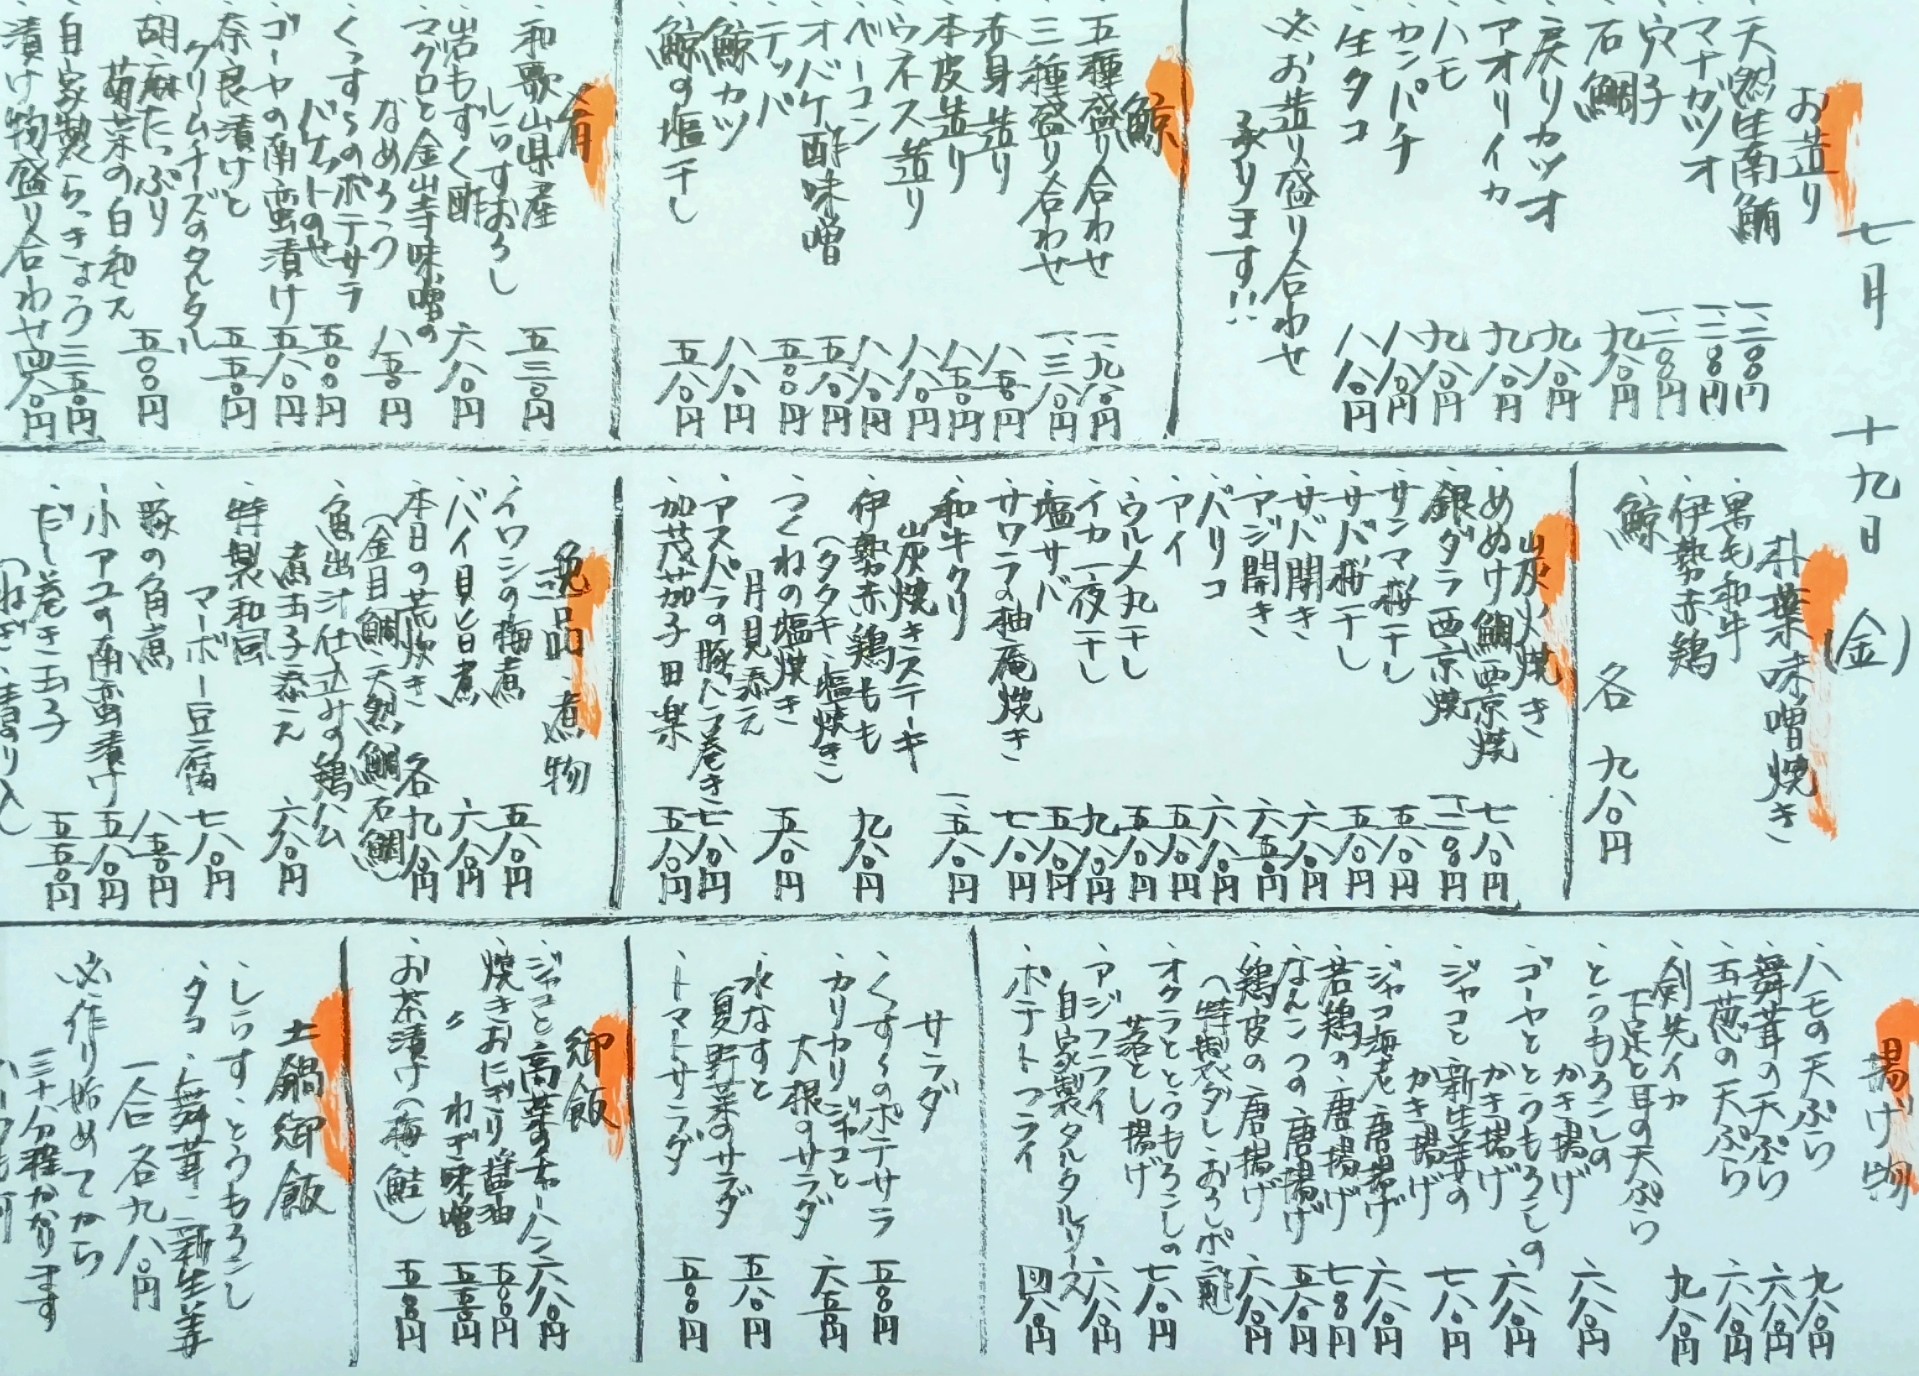 七月 十九日 (金)
お造り
・天然生南鮪 一、二〇〇円
・マナガツオ 一、二〇〇円
・穴子 一、二〇〇円
・石鯛 九八〇円
・戻りカツオ 九八〇円
・アオリイカ 九八〇円
・ハモ 九八〇円
・カンパチ 八八〇円
・生タコ 八八〇円
※お造り盛り合わせ
承ります!!
鯨
・五種盛り合わせ 一、九八〇円
・三種盛り合わせ 一、三八〇円
・赤身造り 八五〇円
・本皮造り 八五〇円
・ウネス造り 八八〇円
・ベーコン 八八〇円
・オバケ酢味噌 五八〇円
・テッパ 五〇〇円
・鯨カツ 八八〇円
・鯨の塩干し 五八〇円
肴
・和歌山県産
しらすおろし 五三〇円
・岩もずく酢 六八〇円
・マグロと金山寺味噌の
なめろう 八五〇円
・くずしのポテサラ
バケットのせ 五〇〇円
・ゴーヤの南蛮漬け 五八〇円
・奈良漬けと
クリームチーズのタルタル 五五〇円
・胡麻たっぷり
菊菜の白和え 五〇〇円
・自家製らっきょう 三五〇円
・漬け物盛り合わせ 四八〇円
朴葉味噌焼き
・黒毛和牛
・伊勢赤鶏
・鯨
各 九八〇円
炭火焼き
・めぬけ鯛西京焼 七八〇円
・銀ダラ西京焼 一、二〇〇円
・サンマ桜干し 五八〇円
・サバ桜干し 五八〇円
・サバ開き 六八〇円
・アジ開き 六五〇円
・バリコ 六八〇円
・アイ 五八〇円
・ウルメ丸干し 五八〇円
・イカ一夜干し 九八〇円
・塩サバ 五八〇円
・サワラの柚庵焼き 七八〇円
・和牛クリ
炭焼きステーキ 一、五八〇円
・伊勢赤鶏もも
(タタキ・塩焼き) 九八〇円
・つくねの塩焼き
月見添え 五八〇円
・アスパラの豚バラ巻き 七八〇円
・加茂茄子田楽 五八〇円
逸品・煮物
・イワシの梅煮 五八〇円
・バイ貝旨煮 六八〇円
・本日の荒炊き 各九八〇円
(金目鯛・天然鯛・石鯛)
・魚出汁仕立みの鶏ハム
煮玉子添え 六八〇円
・特製和風
マーボー豆腐 七八〇円
・豚の角煮 八五〇円
・小アユの南蛮漬け 五八〇円
・だし巻き玉子 五五〇円
(ねぎ・青のり入)
揚げ物
・ハモの天ぷら 九八〇円
・舞茸の天ぷら 六八〇円
・玉葱の天ぷら 六八〇円
・剣先イカ
下足と耳の天ぷら 九八〇円
・とうもろこしの
かき揚げ 六八〇円
・ゴーヤととうもろこしの
かき揚げ 六八〇円
・ジャコと新生姜の
かき揚げ 七八〇円
・ジャコ海老唐揚げ 六八〇円
・若鶏の唐揚げ 七〇〇円
・なんこつの唐揚げ 五八〇円
・鶏皮の唐揚げ 六八〇円
(特製ダし・おろしポン酢)
・オクラととうもろこしの
落とし揚げ 七八〇円
・アジフライ
自家製タルタルソース 六八〇円
・ポテトフライ 四八〇円
サラダ
・くずしのポテサラ 五〇〇円
・カリカリジャコと
大根のサラダ 六五〇円
・水なすと
夏野菜のサラダ 五八〇円
・トマトサラダ 五〇〇円
御飯
・ジャコと高菜のチャーハン 六八〇円
・焼きおにぎり醤油 五〇〇円
・〃 ねぎ味噌 五五〇円
・お茶漬け(梅・鮭) 五五〇円
土鍋御飯
・しらす・とうもろこし
・タコ・舞茸・新生姜
一合 各九八〇円
※作り始めてから
三十分程かかります